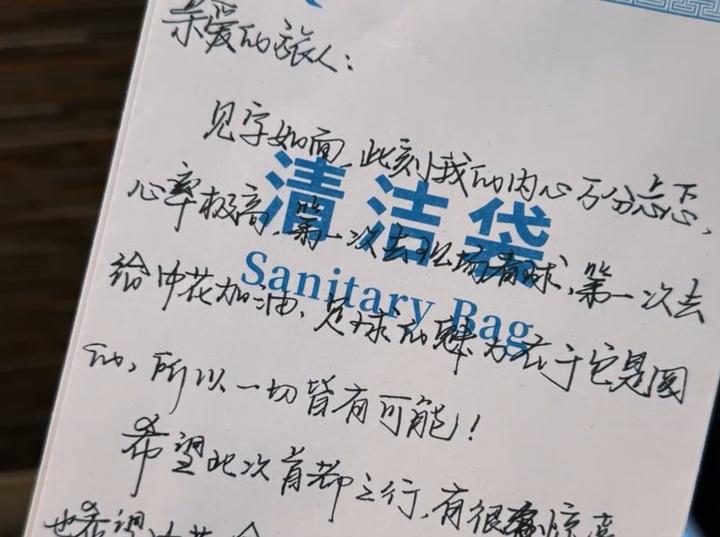 亲爱的旅人：
见字如面，此刻我的内心万分忐忑，
清洁袋
心率极高，第一次去现场看球，第一次去
Sanitary Bag
给中花加油，足球的魅力在于它是圆
的，所以一切皆有可能！
希望此次首都之行，有很多惊喜
也希望